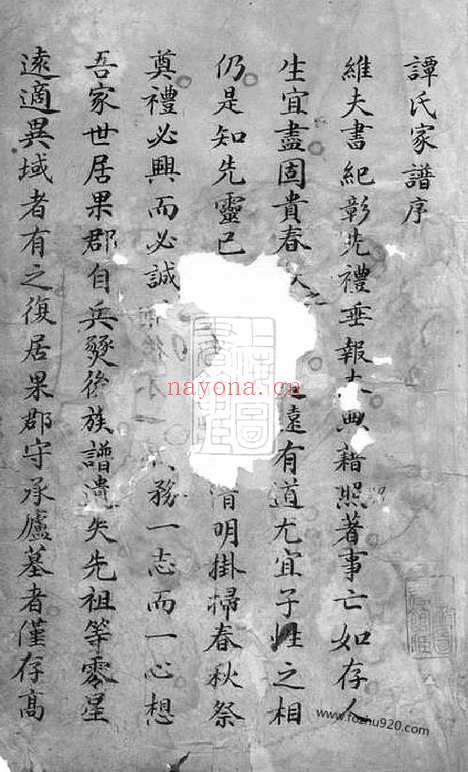 譚氏家譜序
維夫書紀彰先禮垂報本典籍照著事亡如存人
生宜盡固貴春 遠有道尤宜子姓之相
仍是知先靈已 清明掛掃春秋祭
奠禮必興而必誠 務一志而一心想
吾家世居果郡自兵燹後族譜遺失先祖等零星
遠適異域者有之復居果郡守承廬墓者僅存高
nayona.cn
www.fozhu920.com